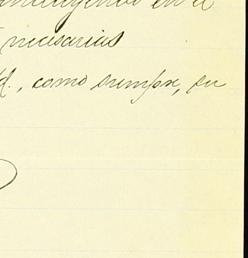 en el
necesarias
d., como siempre, su